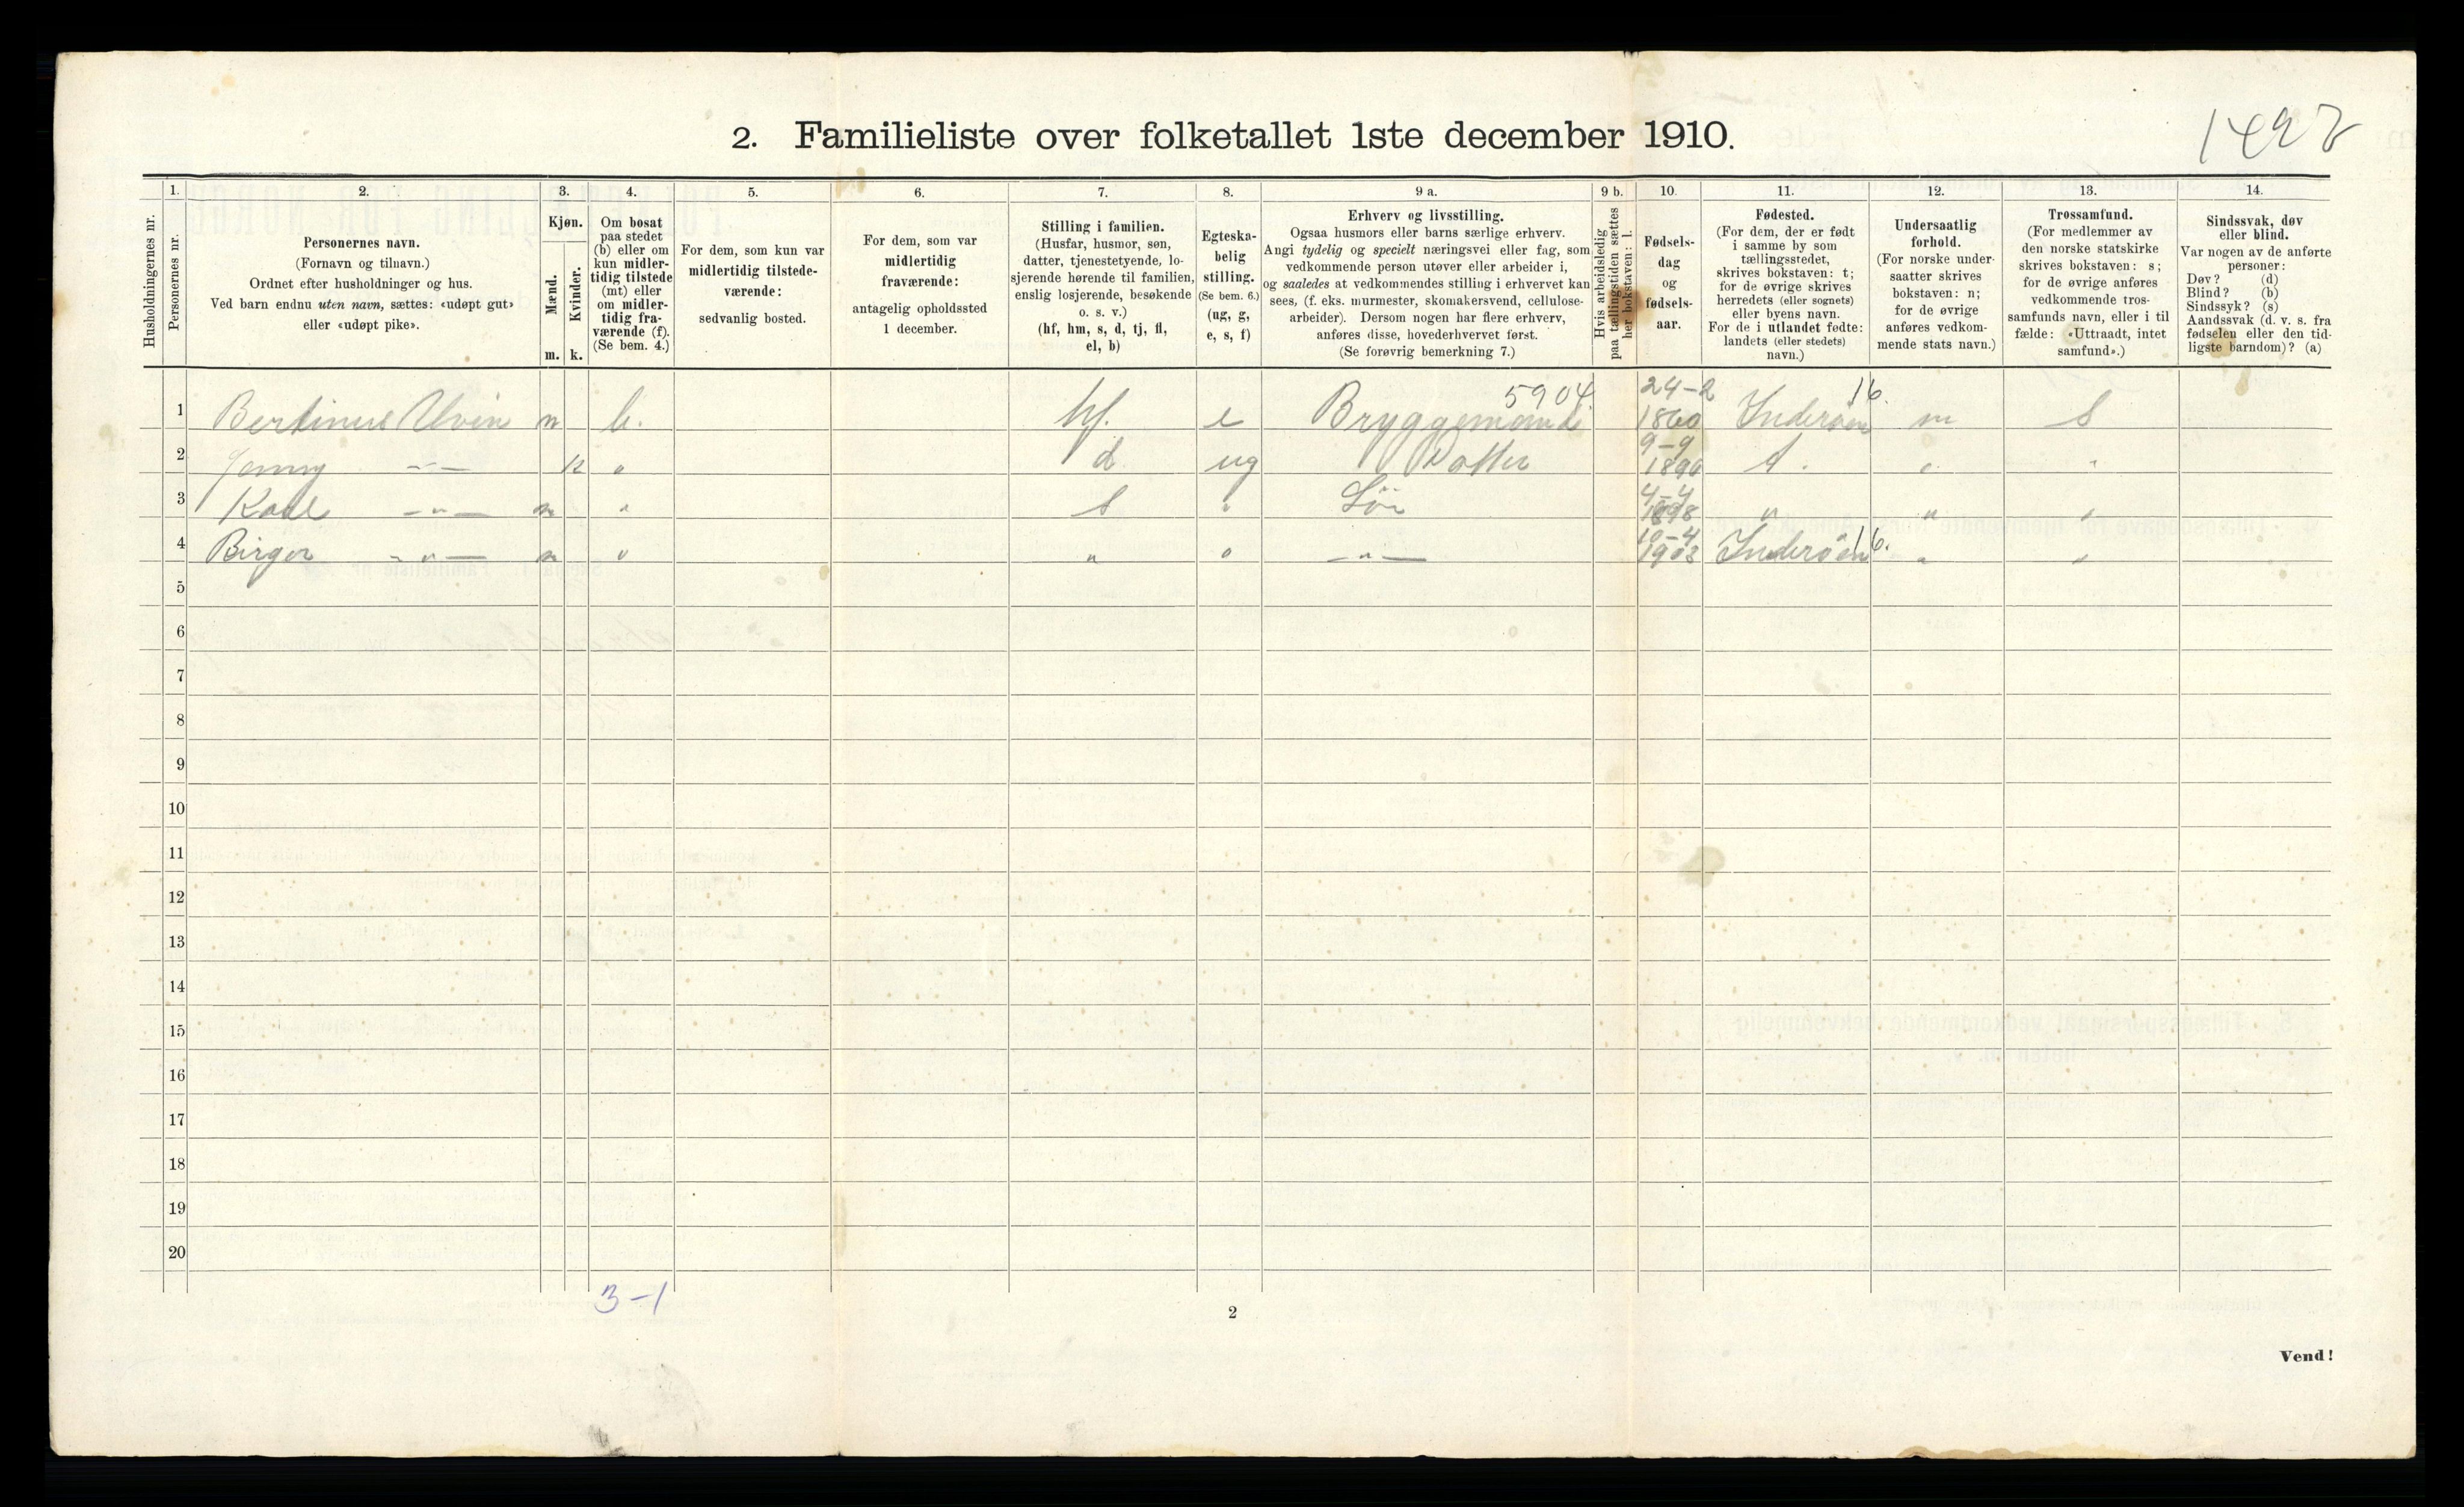 1492
2. Familieliste over folketallet 1ste december 1910.
Husholdningernes nr.
1.
Personernes nr.
2.
Personernes navn.
(Fornavn og tilnavn.)
Ordnet efter husholdninger og hus.
Ved barn endnu uten navn, sættes: «udøpt gut»
eller «udøpt pike».
3.
Kjøn.
Mænd.
Kvinder.
m. k.
4.
Om bosat
paa stedet
(b) eller om
kun midler-
tidig tilstede
(mt) eller
om midler-
tidig fra-
værende (f).
(Se bem. 4.)
5.
For dem, som kun var
midlertidig tilstede-
værende:
sedvanlig bosted.
6.
For dem, som var
midlertidig
fraværende:
antagelig opholdssted
1 december.
7.
Stilling i familien.
(Husfar, husmor, søn,
datter, tjenestetyende, lo-
sjerende hørende til familien,
enslig losjerende, besøkende
o. s. v.)
(hf, hm, s, d, tj, fl,
el, b)
8.
Egteska-
belig
stilling.
(Se bem. 6.)
(ug, g,
e, s, f)
9 a.
Erhverv og livsstilling.
Ogsaa husmors eller barns særlige erhverv.
Angi tydelig og specielt næringsvei eller fag, som
vedkommende person utøver eller arbeider i,
og saaledes at vedkommendes stilling i erhvervet kan
sees, (f. eks. murmester, skomakersvend, cellulose-
arbeider). Dersom nogen har flere erhverv,
anføres disse, hovederhvervet først.
(Se forøvrig bemerkning 7.)
9 b.
Hvis arbeidsledig
paa tællingstiden sættes
her bokstaven: l.
10.
Fødsels-
dag
og
fødsels-
aar.
11.
Fødested.
(For dem, der er født
i samme by som
tællingsstedet,
skrives bokstaven: t;
for de øvrige skrives
herredets (eller sognets)
eller byens navn.
For de i utlandet fødte:
landets (eller stedets)
navn.)
12.
Undersaatlig
forhold.
(For norske under-
saatter skrives
bokstaven: n;
for de øvrige
anføres vedkom-
mende stats navn.)
13.
Trossamfund.
(For medlemmer av
den norske statskirke
skrives bokstaven: s;
for de øvrige anføres
vedkommende tros-
samfunds navn, eller i til-
fælde: «Uttraadt, intet
samfund».)
14.
Sindssvak, døv
eller blind.
Var nogen av de anførte
personer:
Døv? (d)
Blind? (b)
Sindssyk? (s)
Aandssvak (d. v. s. fra
fødselen eller den tid-
ligste barndom)? (a)
1 Bertinus Utvin m b. hf. e Bryggemand 5904 24-2 1860 Inderøen 16. n s
2 Jenny -"- k " d ug Datter 9-9 1890 t. " "
3 Karl -"- m " s " Søn 4-4 1898 " " "
4 Birger -"- m " " " -"- 10-4 1903 Inderøen 16. " "
5
6
7
8
9
10
11
12
13
14
15
16
17
18
19
20
3-1
2
Vend!